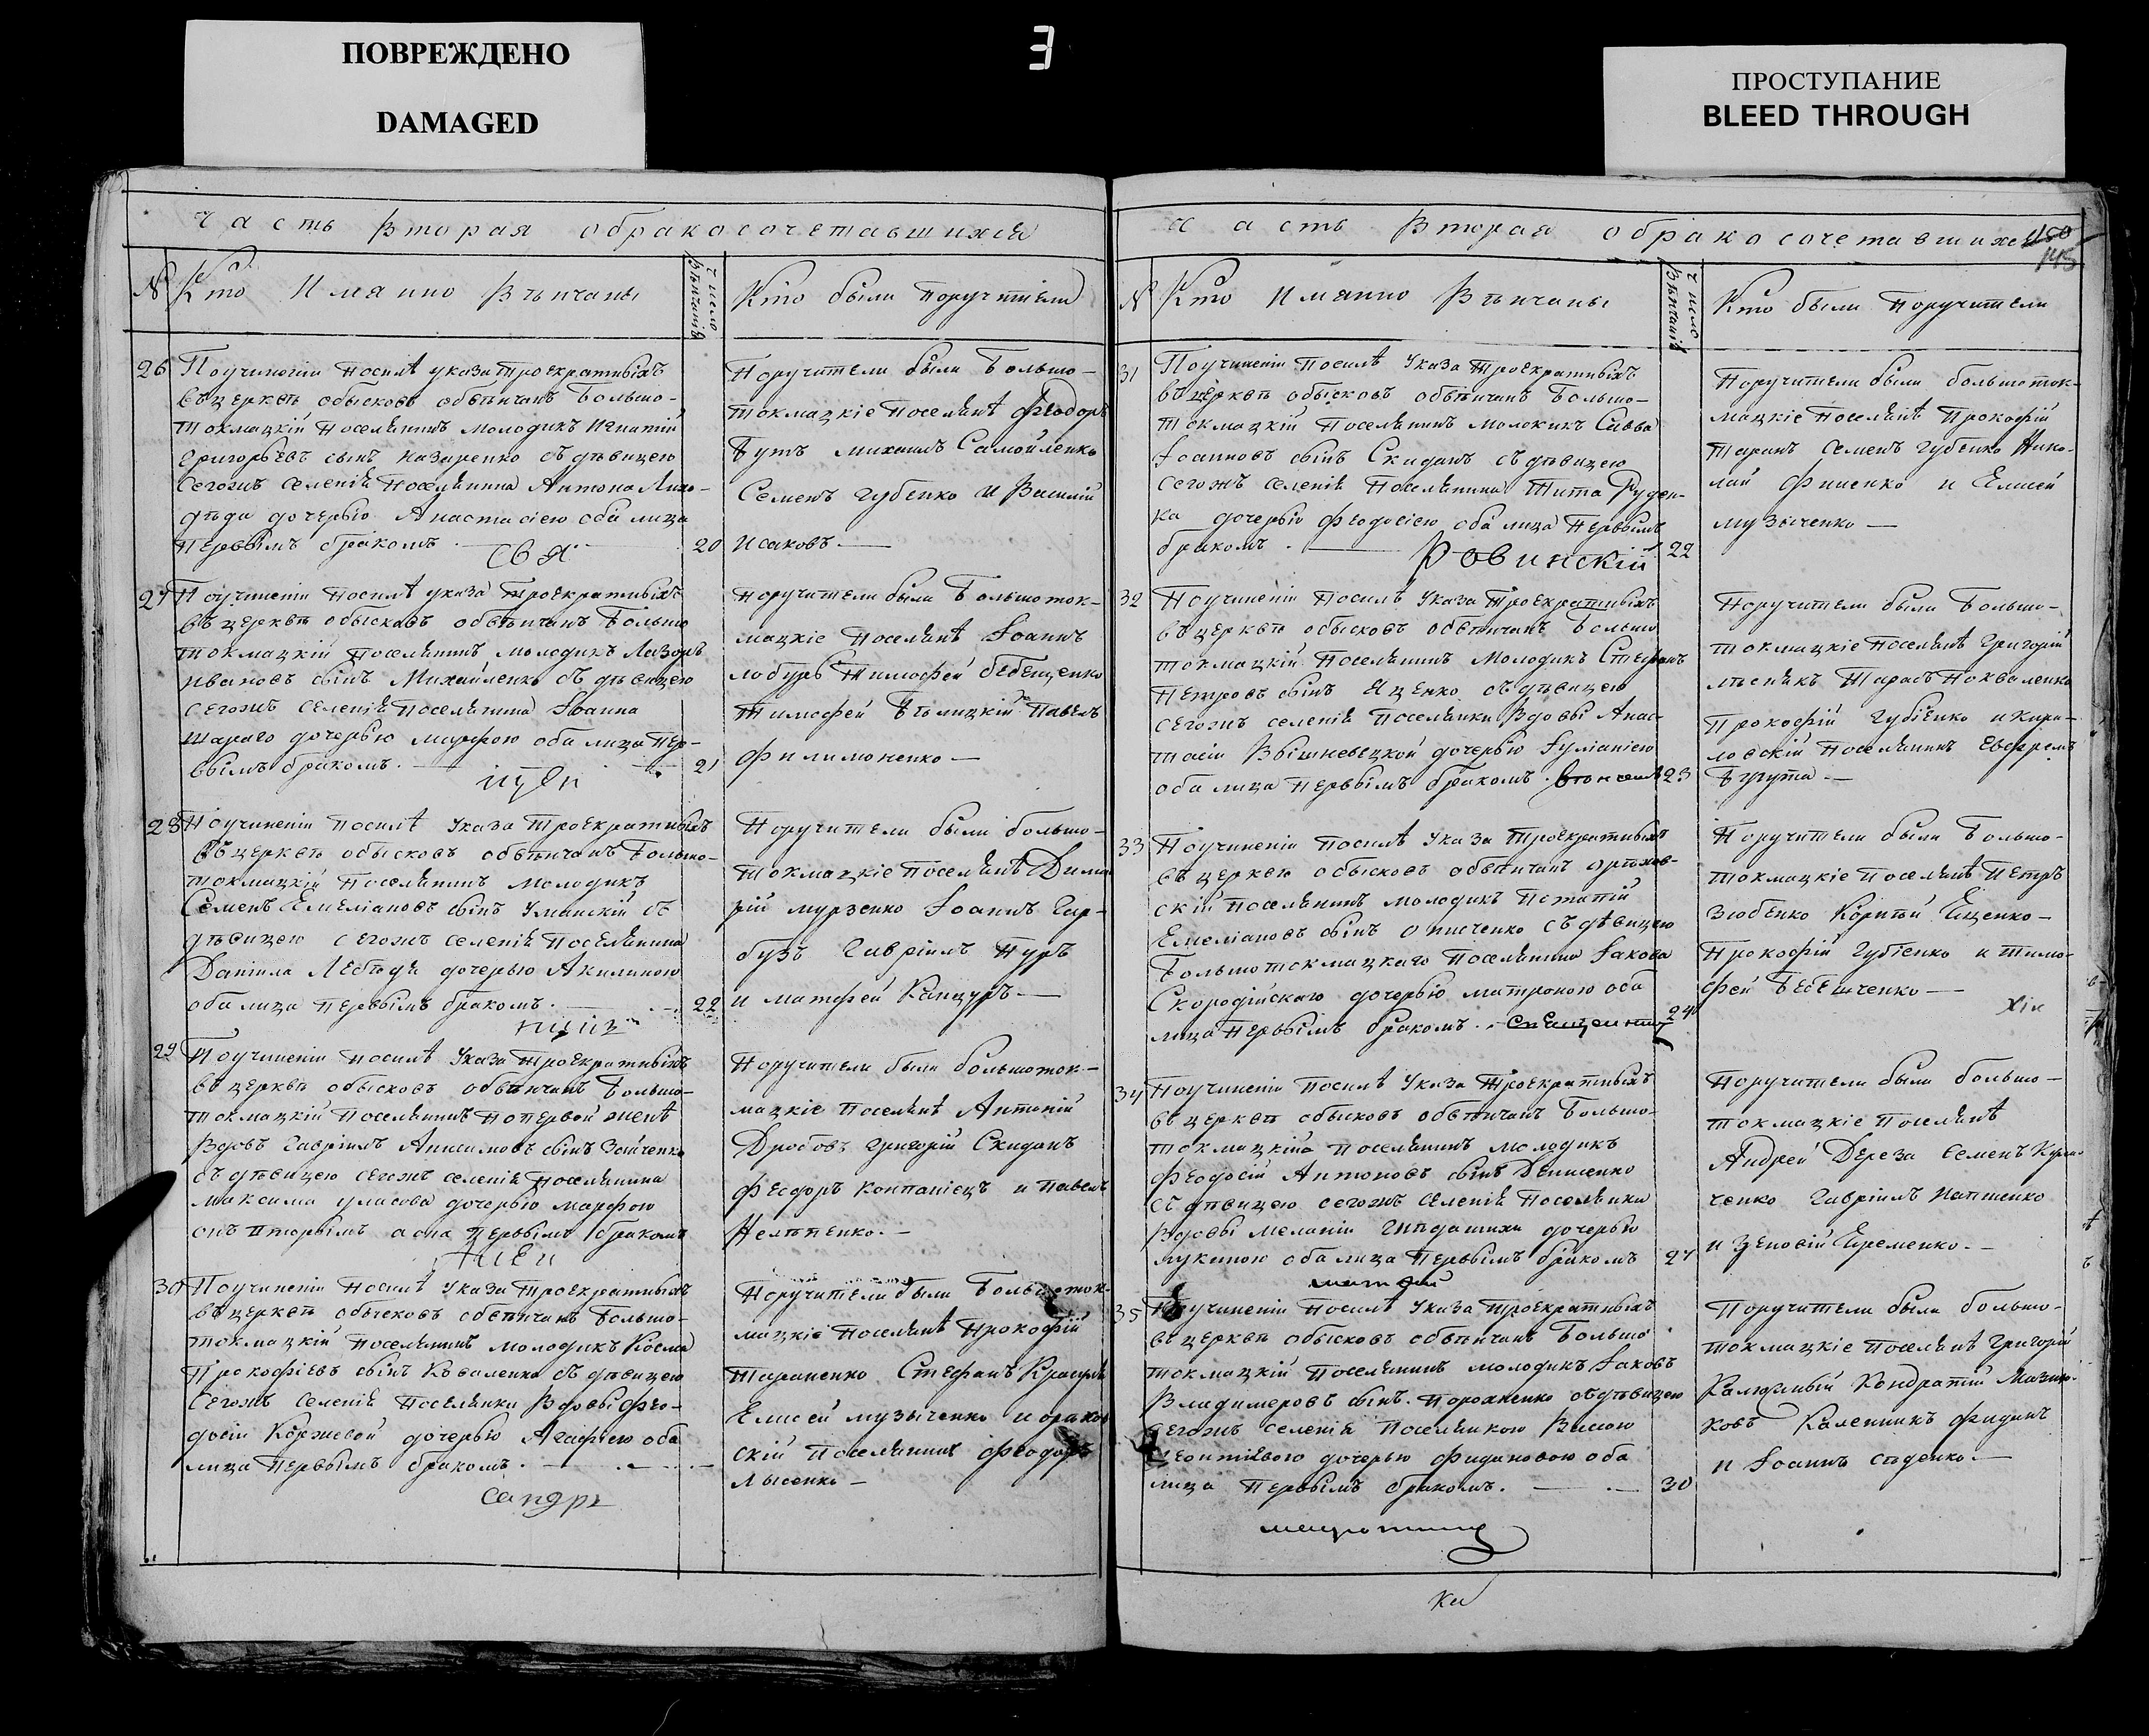 ПОВРЕЖДЕНО
DAMAGED
ПРОСТУПАНИЕ
BLEED THROUGH
Часть Вторая обракосочетавшихся
№ Кто Имянно Вѣнчаны
число Вѣнчанія
Кто были поручители
26 Поучиненіи посилѣ указа троекратныхъ
въ церквѣ обысковъ обвѣнчанъ Большо-
токмацкій Поселянинъ молодикъ Игнатій
Григорьевъ сынъ Назаренко съ дѣвицею
сегожъ селенія Поселянина Антона Лихо-
дѣда дочерью Анастасіею оба лица
первымъ бракомъ. 20
Поручители были Большо-
токмацкіе поселянѣ Феодоръ
Бутъ михаилъ Самойленко
Семенъ Губенко и Василій
Исаковъ.
27 Поучиненіи посилѣ указа троекратныхъ
въ церквѣ обысковъ обвѣнчанъ Большо
токмацкій поселянинъ молодикъ Лазоръ
Ивановъ сынъ Михайленко съ дѣвицею
сегожъ селенія поселянина Іоанна
шараго дочерью марфою оба лица пер-
вымъ бракомъ. 21
поручители были Большоток-
мацкіе поселянѣ Іоаннъ
лобуръ Тимофей бебещенко
Тимофей Бѣлицкій Павелъ
филимоненко
28 Поучиненіи посилѣ Указа троекратныхъ
въ церквѣ обысковъ обвѣнчанъ Большо-
токмацкій Поселянинъ молодикъ
Семенъ Емеліановъ сынъ Уманскій съ
дѣвицею сегожъ селенія Поселянина
Даніила Лебедя дочерью Акилиною
оба лица первымъ бракомъ. 22
Поручители были большо-
токмацкіе поселянѣ Дими
рій мурзенко Іоаннъ Гар-
бузъ Гавріилъ Нуръ
и матфей Канцуръ
29 Поучиненіи посилѣ Указа троекратныхъ
въ церквѣ обысковъ обвѣнчанъ Большо-
токмацкій поселянинъ попервой женѣ
вдовъ Гавріилъ Анисимовъ сынъ Зайченко
съ дѣвицею сегожъ селенія поселянина
максима уласова дочерью марфою
онъ вторымъ а она первымъ бракомъ
Поручители были большоток-
мацкіе поселянѣ Антоній
Дробовъ Григорій Скиданъ
Феодоръ Компаніецъ и павелъ
Нелѣпенко.
30 Поучиненіи посилѣ Указа троекратныхъ
въ церквѣ обысковъ обвѣнчанъ Большо-
токмацкій поселянинъ молодикъ Косма
Прокофіевъ сынъ Коваленко съ дѣвицею
сегожъ селенія поселянки Вдовы Фео-
досіи Коржевой дочерью Агафіею оба
лица первымъ бракомъ.
Поручители были Большоток-
мацкіе поселянѣ Прокофій
Тараненко Стефанъ
Елисей музыченко и орѣхов
скій поселянинъ феодоръ
лысенко
Часть Вторая обракосочетавшихся
150
145
№ Кто Имянно Вѣнчаны
число Вѣнчанія
Кто были Поручители
31 Поучиненіи посилѣ Указа троекратныхъ
въ церквѣ обысковъ обвѣнчанъ Большо-
токмацкій поселянинъ молокикъ Савва
Іоанновъ сынъ Скиданъ съ дѣвицею
сегожъ селенія поселянина Тита Руден-
ка дочерью Феодосіею оба лица первымъ
бракомъ. Ровинскій 22
Поручители были большоток-
мацкіе поселянѣ Прокофій
Таранъ Семенъ Губенко Нико-
лай Фисенко и Елисей
музыченко
32 Поучиненіи посилѣ Указа троекратныхъ
въ церквѣ обысковъ обвѣнчанъ Большо
токмацкій поселянинъ Молодикъ Стефанъ
Петровъ сынъ Яценко съ дѣвицею
сегожъ селенія поселянки Вдовы Анас-
тасіи Вышневецкой дочерью Іуліаніею
оба лица первымъ бракомъ. 23
Поручители были Большо-
токмацкіе поселянѣ Григорій
лѣсникъ Тарасъ Поковаленко
Прокофій Губіенко и кири-
ловскій поселянинъ Евфремъ
Бугута
33 Поучиненіи посилѣ Указа троекратныхъ
въ церквѣ обысковъ обвѣнчанъ орѣхов-
скій поселянинъ молодикъ Потапій
Емеліановъ сынъ Онисченко съ дѣвицею
Большотокмацкаго поселянина Іакова
Скородійскаго дочерью матроною оба
лица первымъ бракомъ. 24
Поручители были Большо-
токмацкіе поселянѣ Петръ
Зюбенко Корнѣй Ященко
Прокофій Губіенко и тимо-
фей Бебешченко
34 Поучиненіи посилѣ Указа троекратныхъ
въ церквѣ обысковъ обвѣнчанъ Большо-
токмацкій поселянинъ молодикъ
Феодосій Антоновъ сынъ Денисенко
съ дѣвицею сегожъ селенія поселянки
Вдовы Меланіи дочерью
лукиною оба лица первымъ бракомъ 27
Поручители были большо-
токмацкіе поселянѣ
Андрей Дереза Семенъ
ченко Гавріилъ Напшенко
и Зеновій Еременко.
35 Поучиненіи посилѣ Указа троекратныхъ
въ церквѣ обысковъ обвѣнчанъ Большо
токмацкій поселянинъ молодикъ Іаковъ
Владимеровъ сынъ Порохненко съ дѣвицею
сегожъ селенія поселянкою Васою
Леонтіевою дочерью Фидановою оба
лица первымъ бракомъ. 30
Поручители были большо-
токмацкіе поселянѣ Григорій
Калюжный Кондратій
ковъ Каленникъ Фиданъ
и Іоаннъ сѣденко